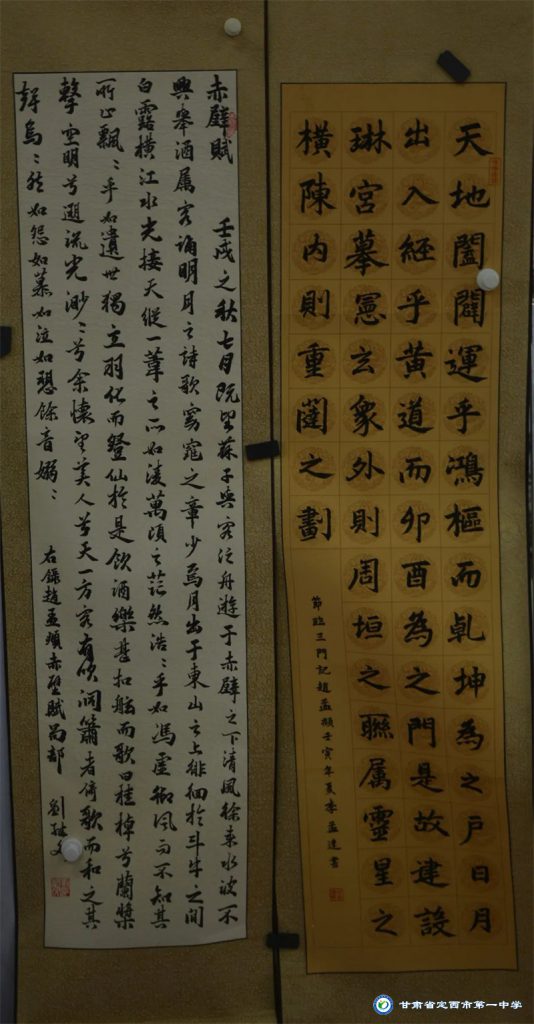 天地闔闢運乎鴻樞而乹坤為之戶日月
出入經乎黃道而卯酉為之門是故建設
琳宮摹憲玄象外則周垣之聯属靈星之
橫陳内則重闈之劃
節臨三門記趙孟頫壬寅年夏李孟達書
赤壁賦 壬戌之秋七月既望蘇子與客泛舟遊于赤壁之下清風徐来水波不
興舉酒属客誦明月之詩歌窈窕之章少焉月出于東山之上徘徊於斗牛之間
白露橫江水光接天縱一葦之所如淩萬頃之茫然浩〻乎如馮虛御風而不知其
所止飄〻乎如遺世獨立羽化而登仙於是飲酒樂甚扣舷而歌曰桂棹兮蘭槳
擊空明兮遡流光渺〻兮余懷望美人兮天一方客有吹洞簫者倚歌而和之其
聲烏〻然如怨如慕如泣如愬餘音嫋〻
右錄趙孟頫赤壁賦局部 劉
甘肃省定西市第一中学